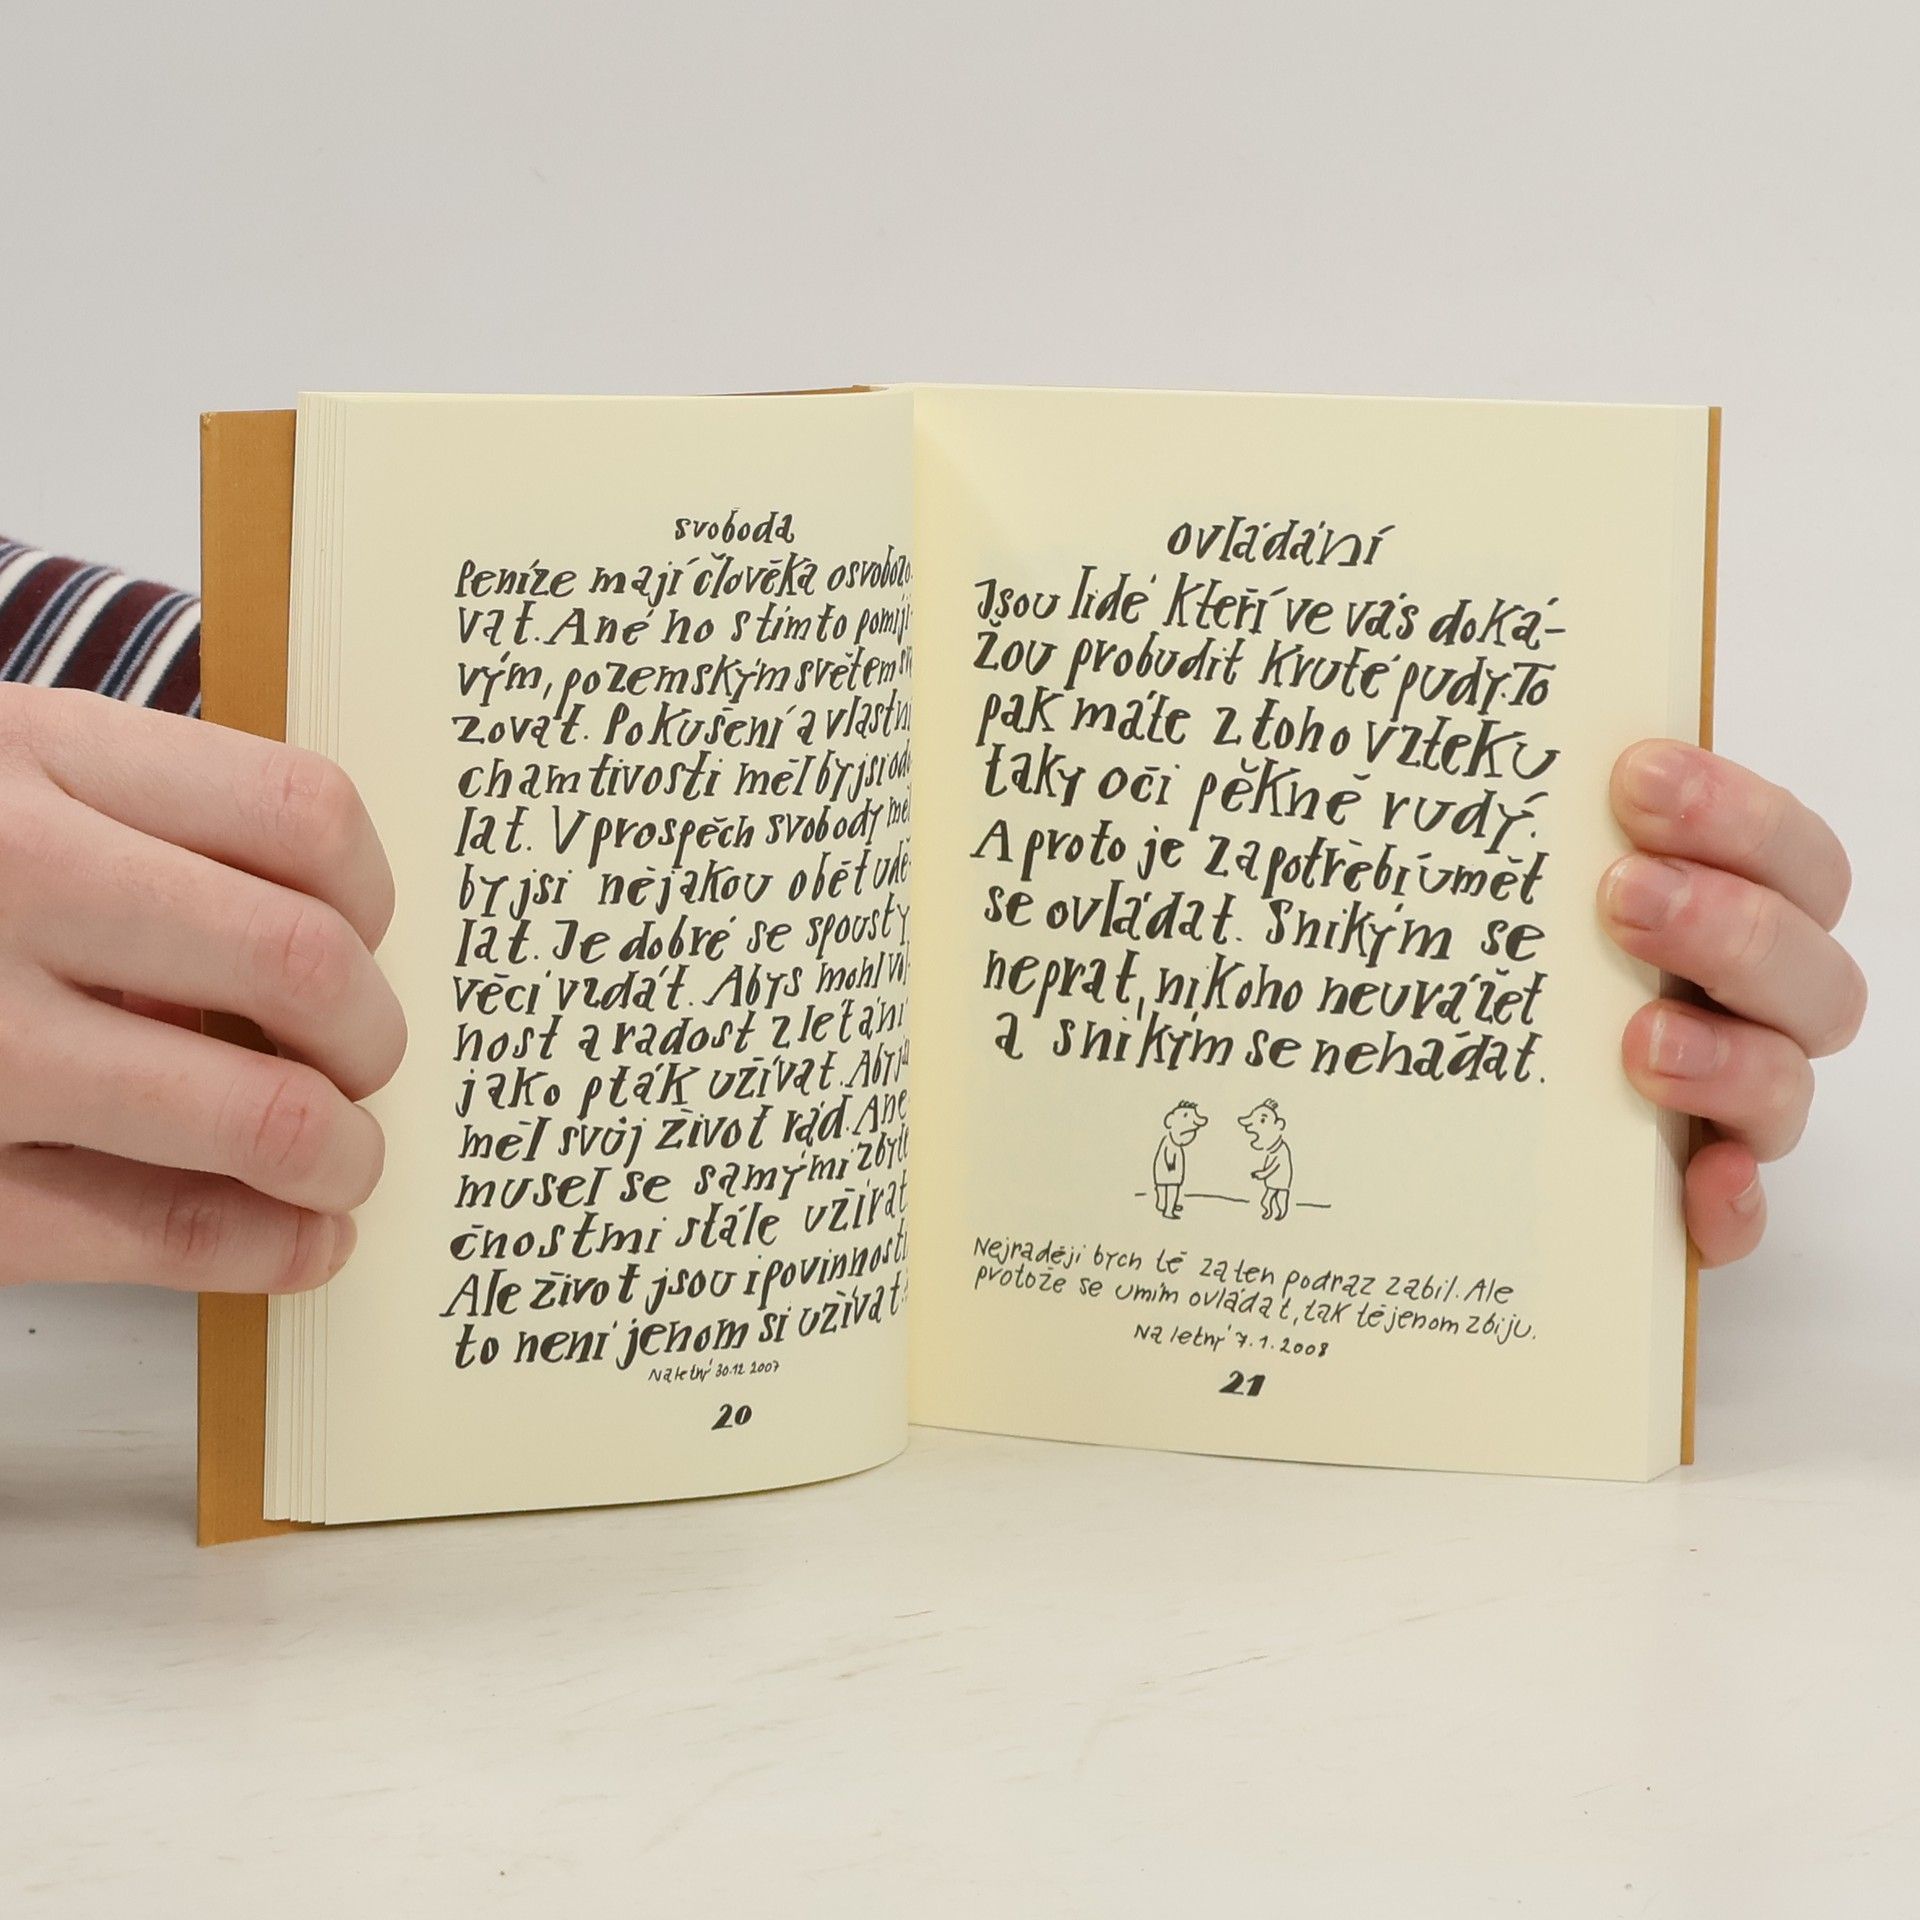 svoboda
Peníze mají člověka osvobozo-
vat. A né ho s tímto pomíji-
vým, pozemským světem
zovat. Pokušení a vlastní
chamtivosti měl by jsi odo-
lat. V prospěch svobody měl
by jsi nějakou oběť udě-
lat. Je dobré se spousty
věcí vzdát. Abys mohl vol-
nost a radost z létání
jako pták užívat. Aby jsi
měl svůj život rád. A ne-
musel se samými zbyte-
čnostmi stále užírat
Ale život jsou i povinnosti
to není jenom si užívat!
Na letný 30.12 2007
20
ovládání
Jsou lidé kteří ve vás doká-
žou probudit kruté pudy. To
pak máte z toho vzteku
taky oči pěkně rudý.
A proto je zapotřebí umět
se ovládat. S nikým se
neprat, nikoho neurážet
a s nikým se nehádat.
Nejraději bych tě za ten podraz zabil. Ale
protože se umím ovládat, tak tě jenom zbiju.
Na letný 7.1.2008
21